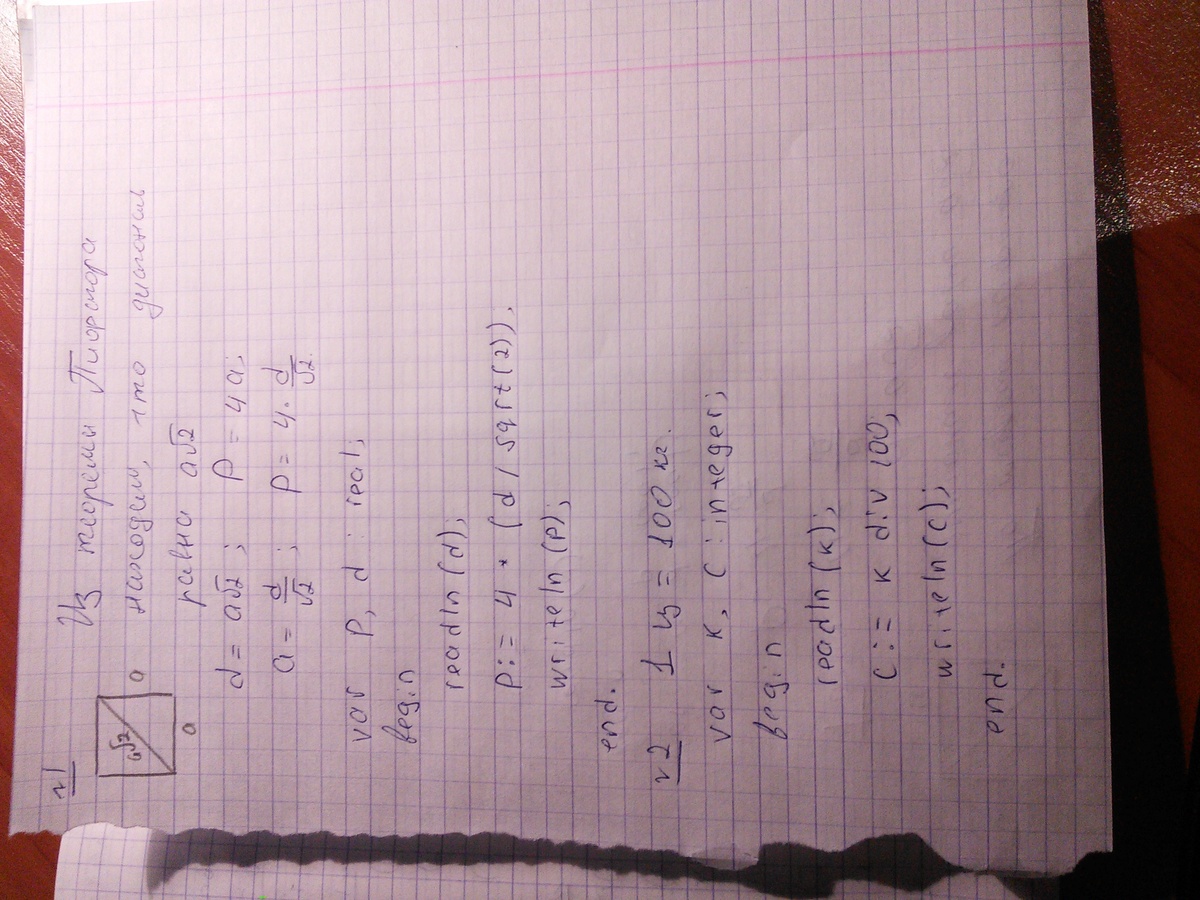 №1
a√2
a
a
Из теоремы Пифагора
находим, что диагональ
равна a√2
d = a√2; P = 4a;
a = d/√2; P = 4 · d/√2.
var P, d : real;
begin
readln (d);
P := 4 * (d / sqrt(2));
writeln (P);
end.
№2 1 ц = 100 кг.
var K, C : integer;
begin
readln (K);
C := K div 100;
writeln (C);
end.